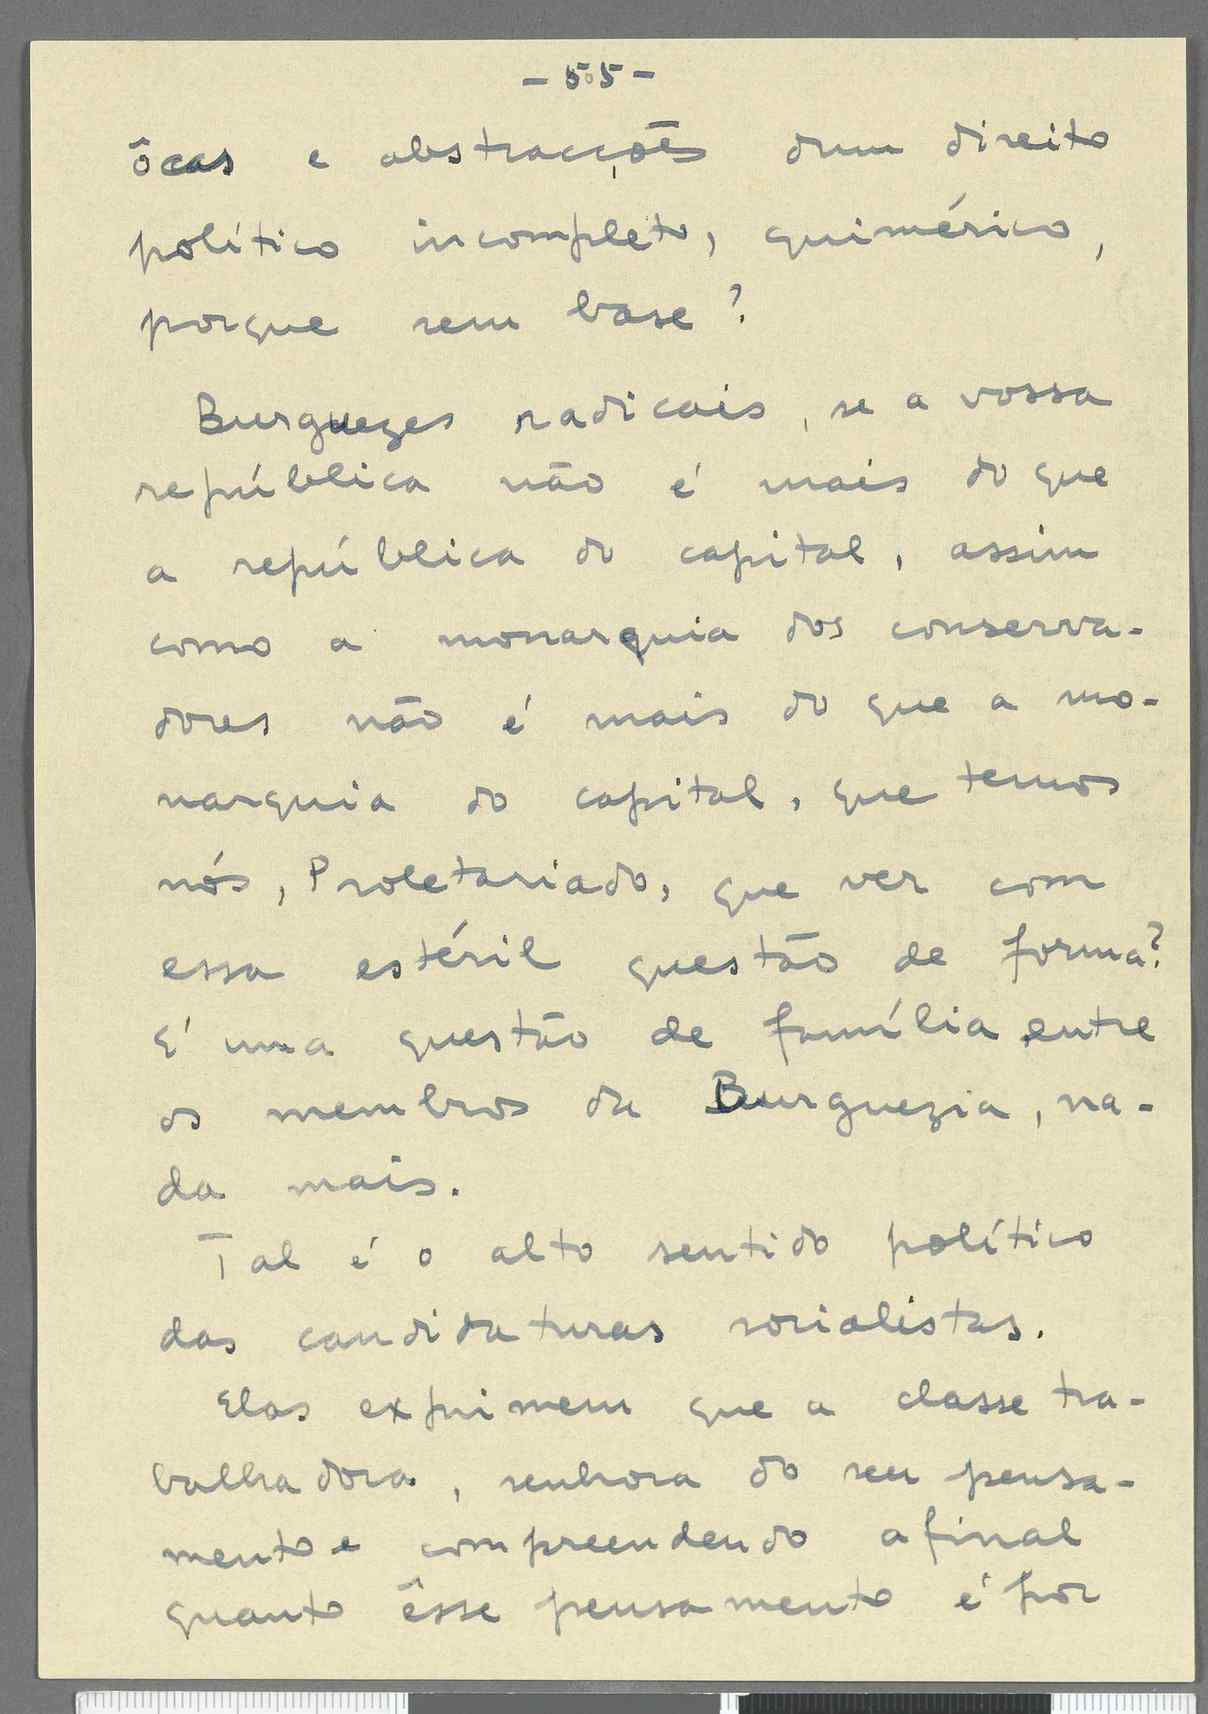 - 55 -
ôcas e abstracções dum direito
político incompleto, quimérico,
porque sem base?
Burguezes radicais, se a vossa
república não é mais do que
a república do capital, assim
como a monarquia dos conserva-
dores não é mais do que a mo-
narquia do capital, que temos
nós, Proletariado, que ver com
essa estéril questão de forma?
É uma questão de família entre
os membros da Burguezia, na-
da mais.
Tal é o alto sentido político
das candidaturas socialistas.
Elas exprimem que a classe tra-
balhadora, senhora do seu pensa-
mento e compreendendo afinal
quanto êsse pensamento é por